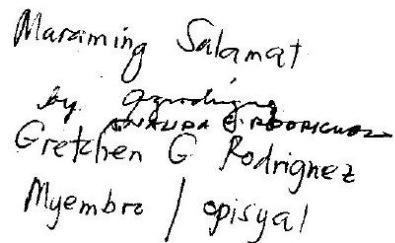 Maraming Salamat
by
E. RODRIGUEZ
Gretchen G Rodriguez
Myembro / opisyal